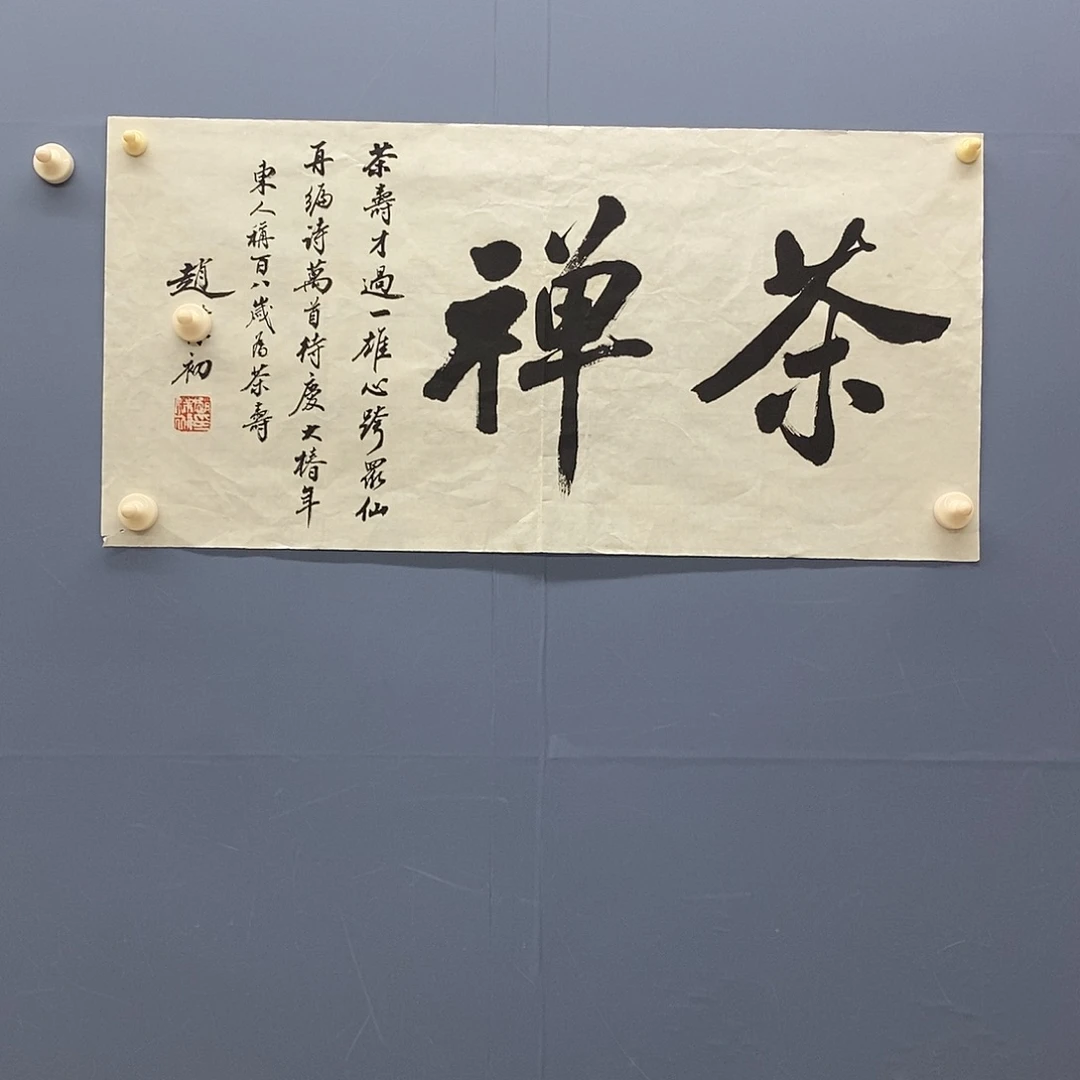 茶禅
茶壽才過一雄心跨眾仙
再编诗萬首待慶大椿年
東人稱百八歲為茶壽
趙 初